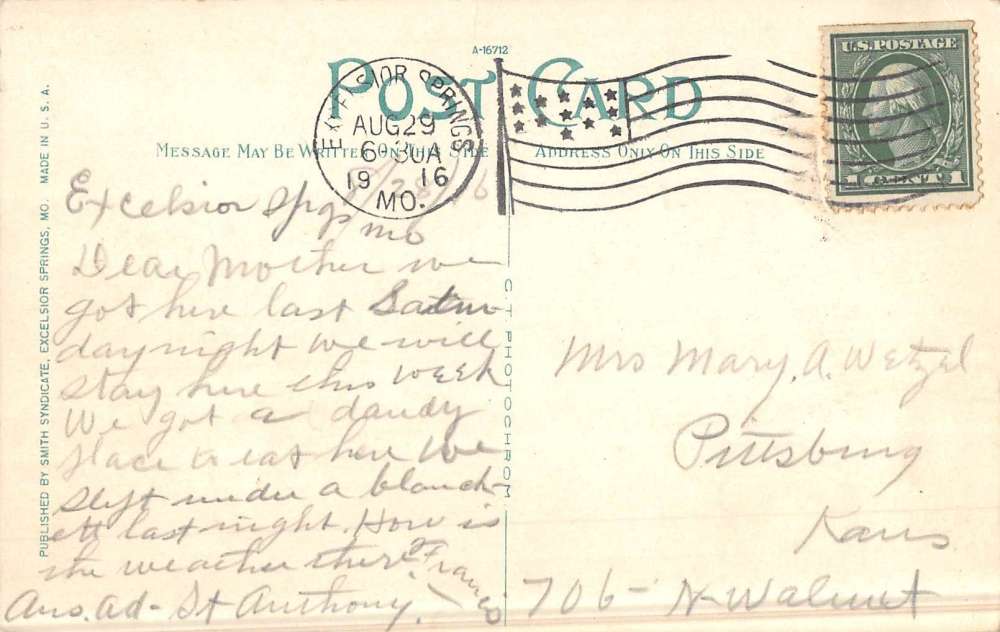 A-16712
POST CARD
MESSAGE MAY BE WRITTEN ON THIS SIDE
ADDRESS ONLY ON THIS SIDE
EXCELSIOR SPRINGS
AUG 29
6-30A
1916
MO.
U.S. POSTAGE
1 CENT 1
PUBLISHED BY SMITH SYNDICATE, EXCELSIOR SPRINGS, MO. MADE IN U. S. A.
C. T. PHOTOCHROM
Excelsior Spgs
Mo
Dear Mother we
got here last Satur
day night We will
stay here this week
We got a dandy
place to eat here We
slept under a blanck-
ett last night. How is
the weather there?
Ans. ad- St Anthony.
Mrs Mary. A. Wetzel
Pittsburg
Kans
706- N- Walnut